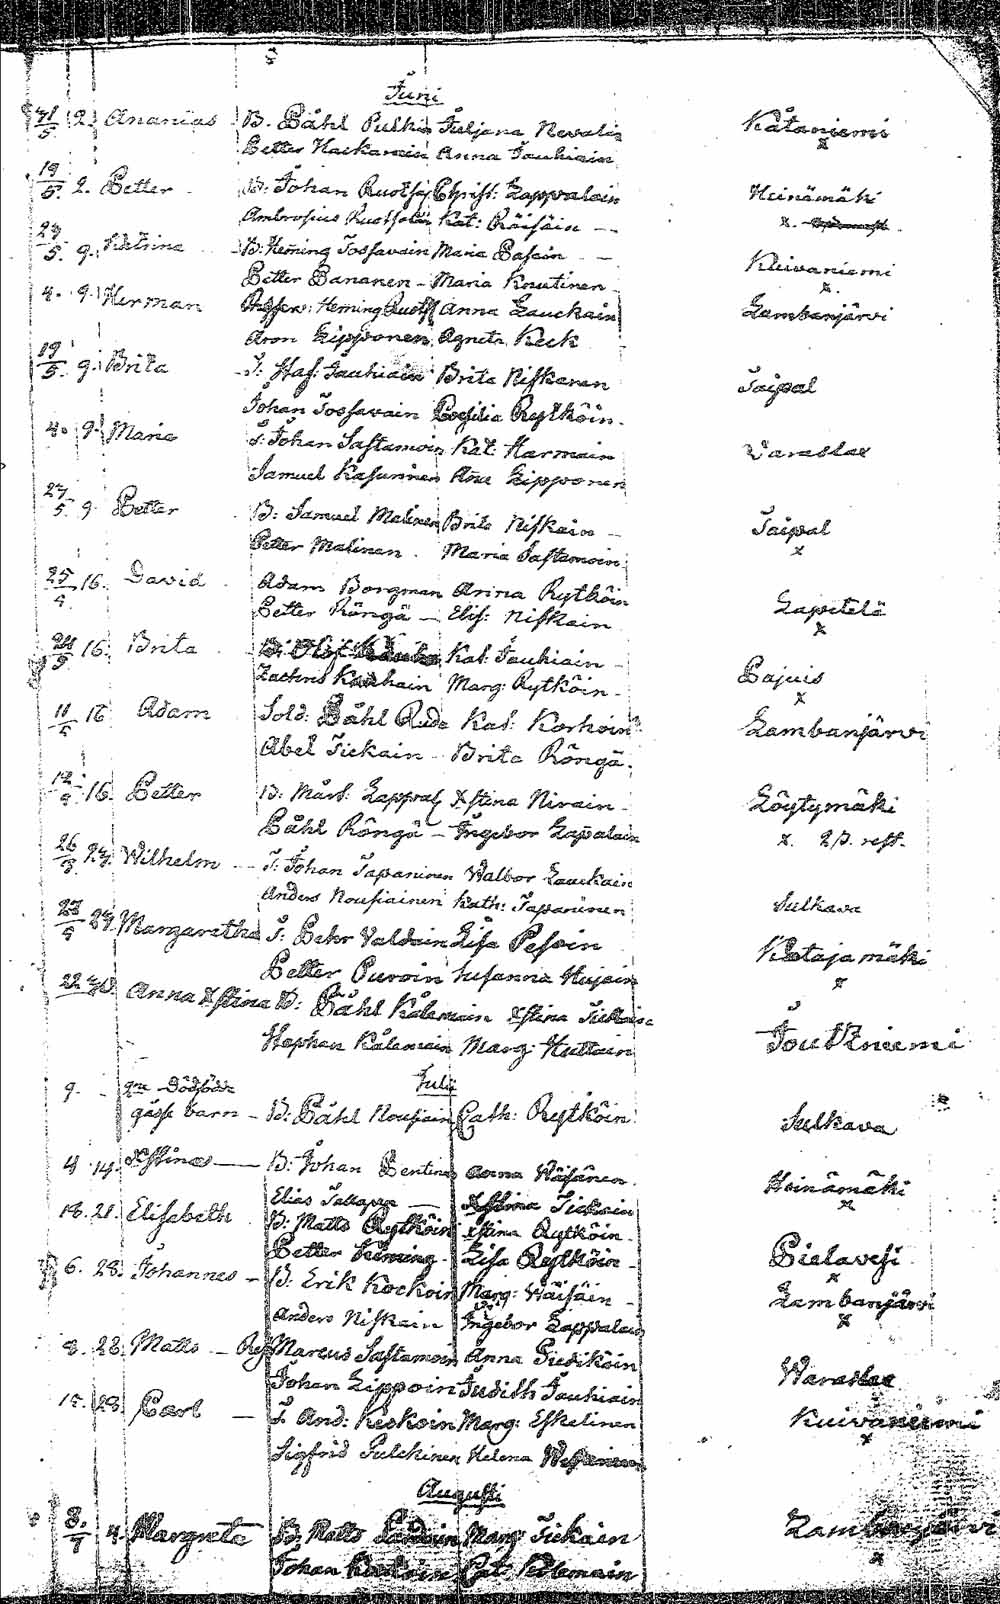 Juni
31/5 2. Ananias B. Påhl Pulkin Juljana Nevalin Kåtaniemi
Petter Hackarain Anna Jauhiain x
19/5. 2. Petter B: Johan Ruotsa Christ: Lappalain Heinämäki
Ambrosius Ruotsalain Kat: Räisäin x.
5. 9. Katrina B: Heming Tossavain Maria Pasain Kuivaniemi
Petter Pananen Maria Knutinen x.
4. 9. Herman Heming Ruots Anna Lauckain Lambanjärvi
Aron Lipponen Agneta Keck
19/5. 9. Brita J: Staf: Jauhiain Brita Niskanen Taipal
Johan Tossavain Cecilia Rytköin.
4. 9. Maria J: Johan Sastamoin Kat: Harmain Varaslax
Samuel Kasurinen Ana Lipponen
27/5. 9. Petter B: Samuel Malinen Brita Niskain Taipal
Petter Malinen. Maria Sastamoin x
25/4 16. David Adam Borgman Anna Rytköin Lapetelä
Petter Röngä Elis: Niskain x
16. Brita Kat: Jauhiain Pajuis
Zachris Marg: Rytköin x
11 16 Adam Sold: Påhl Rude Kat: Korhoin Lambanjärvi
Abel Tickain Brita Röngä.
12 16. Petter B: Mårt: Lappal Xstina Nirain Löytymäki
Påhl Röngä Ingebor Lapalain x. 2/3. rest.
26 Wilhelm J: Johan Tapaninen Walbor Lauckain
Anders Nousiainen Kath: Tapaninen Sulkava
Margaretha J: Pehr Valdain Lisa Pesoin Katajamäki
Petter Puroin Susanna Hujain x
22 30. Anna Xstina B: Påhl Kålemain Xstina Tickain
Stephan Kålemain Marg: Huttain Joutzniemi
Julii
9. qve Dödfödde
gåsse barn B: Påhl Nousiain Cath: Rytköin Sulkava
4 14. Xstina B: Johan Pentinen Anna Wäsänen Heinämäki
Elias Xstina Tickain x
18. 21. Elisabeth B: Matts Rytköin Xstina Rytköin
Petter Heming Lisa Rytköin Pielavesi
6. 28. Johannes B: Erik Kockoin Marg: Wäisäin x
Anders Niskain Ingebor Lappalain Lambanjärvi
x
8. 28. Matts Marcus Sastamoin Anna Tiedikäin Waraslax
Johan Lippoin Judith Jauhiain
15. 28. Carl J. And: Keckoin Marg: Eskelinen Kuivaniemi
Sigfrid Pulckinen Helena x
Augusti
8./7 4. Margreta B. Matts Marg: Tickain Lambanjärvi
Johan Cat: Kålemain x